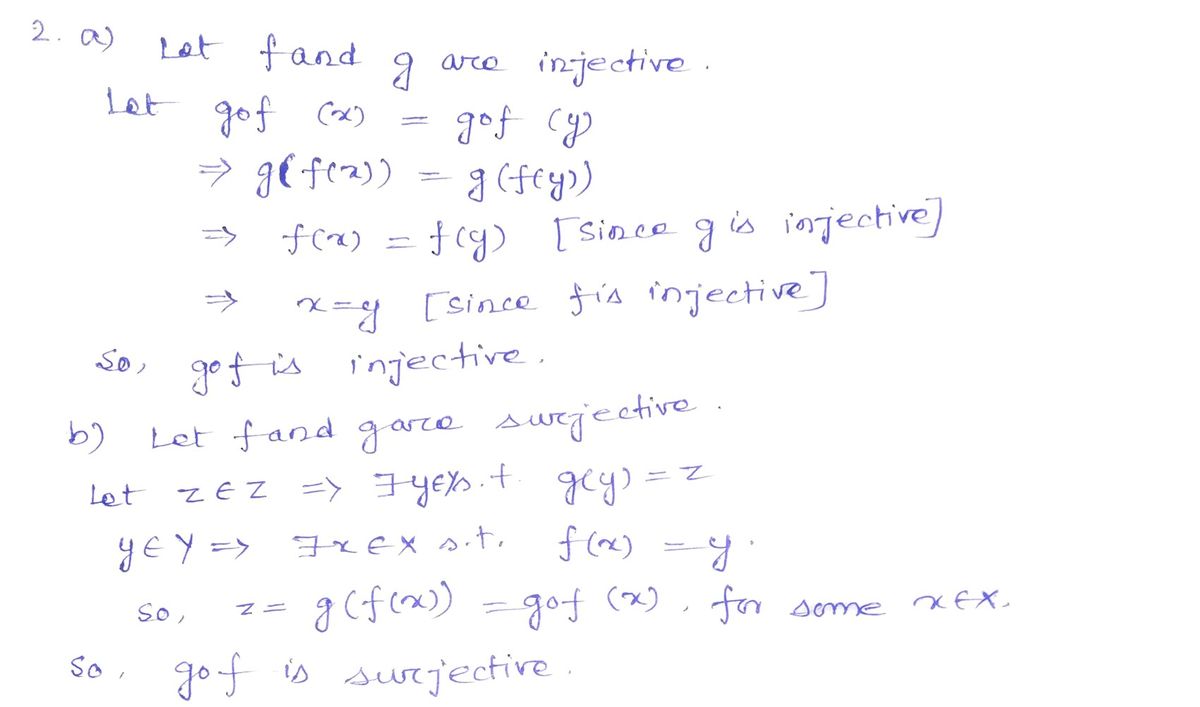 2. a) Let f and g are injective.
Let gof (x) = gof (y)
⇒ g(f(x)) = g(f(y))
⇒ f(x) = f(y) [since g is injective]
⇒ x=y [since f is injective]
So, gof is injective.
b) Let f and g are surjective.
Let z ∈ Z ⇒ ∃ y∈Y s.t. g(y) = z
y ∈ Y ⇒ ∃ x ∈ X s.t. f(x) = y.
so, z = g(f(x)) = gof (x), for some x ∈ X.
So, gof is surjective.